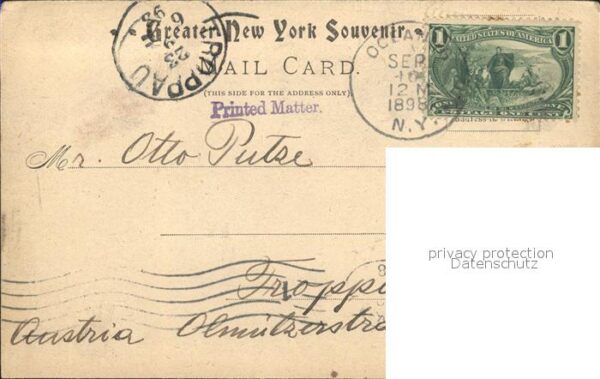 Greater New York Souvenir
MAIL CARD.
(THIS SIDE FOR THE ADDRESS ONLY)
Printed Matter.
TROPPAU
23
9
6
98
OCEAN
SEP
10
12 M
1898
N.Y.
1 UNITED STATES OF AMERICA 1
ONE CENT
Mr. Otto Putze
privacy protection
Datenschutz
Troppau
Austria Olmützerstre